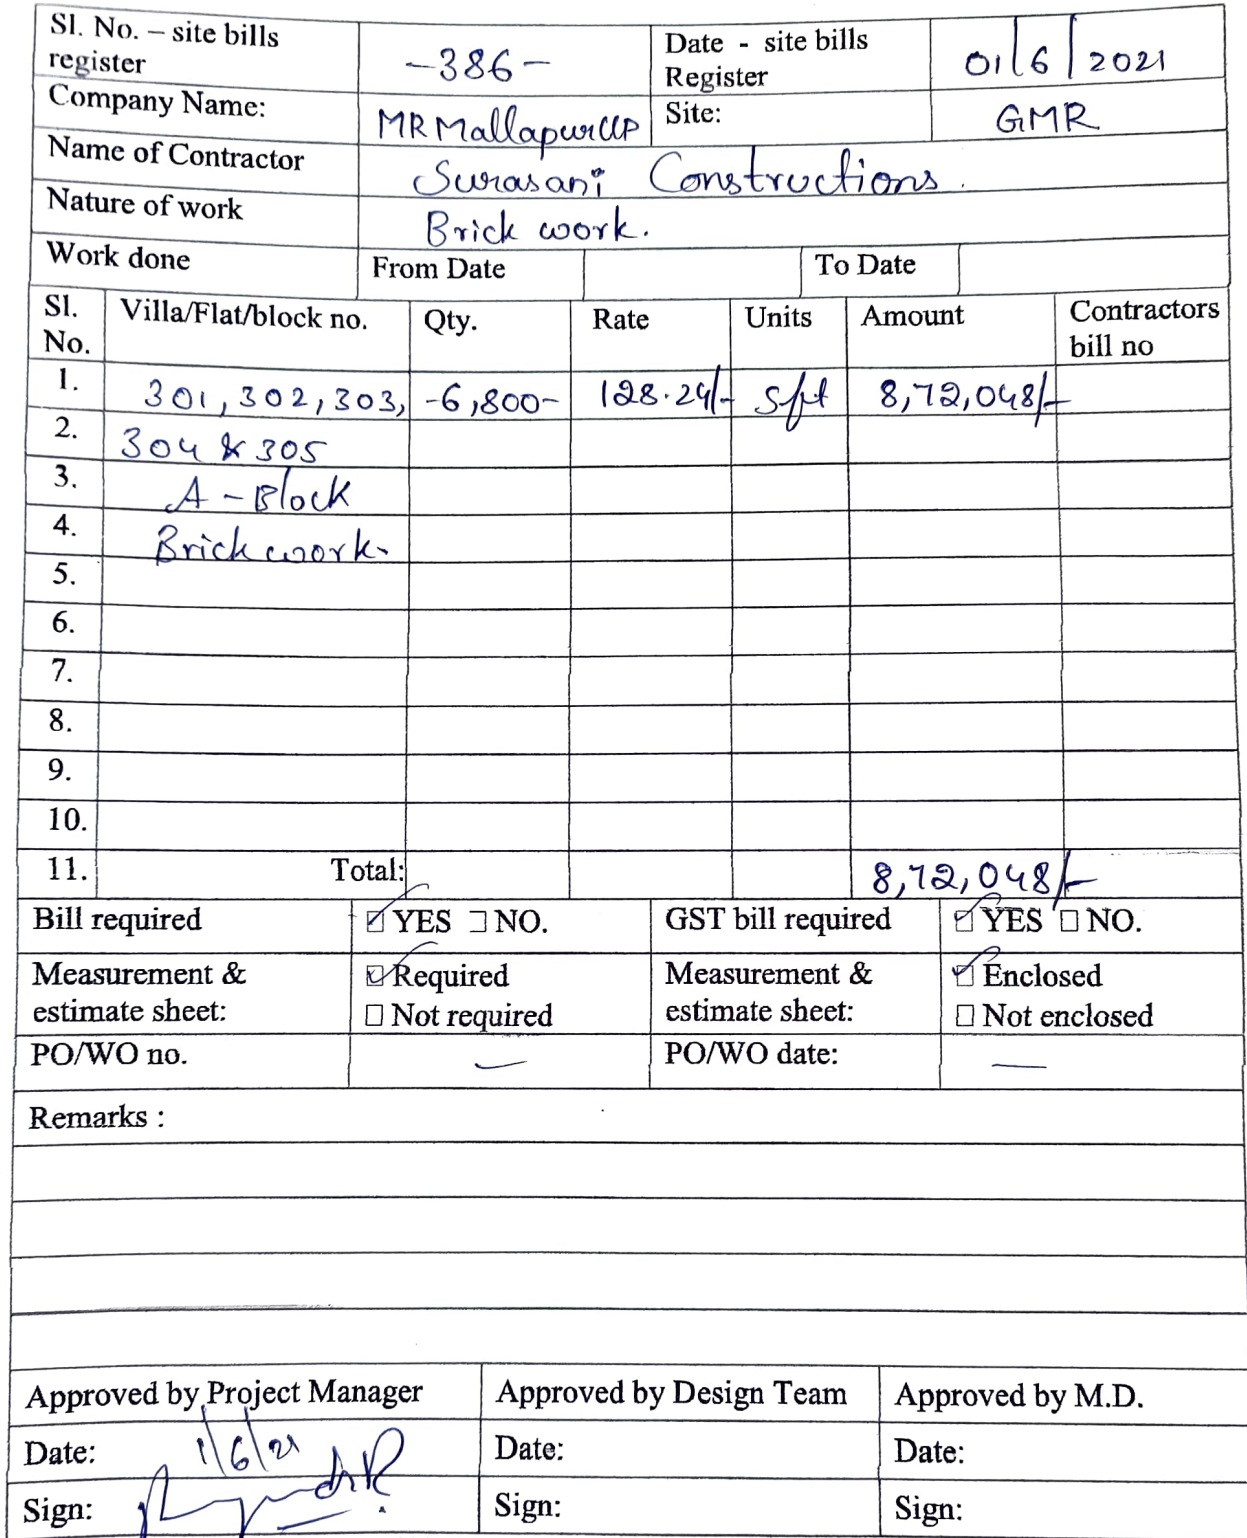 Sl. No. – site bills register -386- Date - site bills Register 01/6/2021
Company Name: MR Mallapur LLP Site: GMR
Name of Contractor Surasani Constructions.
Nature of work Brick work.
Work done From Date To Date
Sl. No. Villa/Flat/block no. Qty. Rate Units Amount Contractors bill no
1. 301, 302, 303, -6,800- 128.24/- sft 8,72,048/-
2. 304 & 305
3. A - Block
4. Brick work.
5.
6.
7.
8.
9.
10.
11. Total: 8,72,048/-
Bill required ☑ YES ☐ NO. GST bill required ☑ YES ☐ NO.
Measurement & estimate sheet: ☑ Required ☐ Not required Measurement & estimate sheet: ☑ Enclosed ☐ Not enclosed
PO/WO no. — PO/WO date: —
Remarks :
Approved by Project Manager Approved by Design Team Approved by M.D.
Date: 1/6/21 Date: Date:
Sign: Sign: Sign: